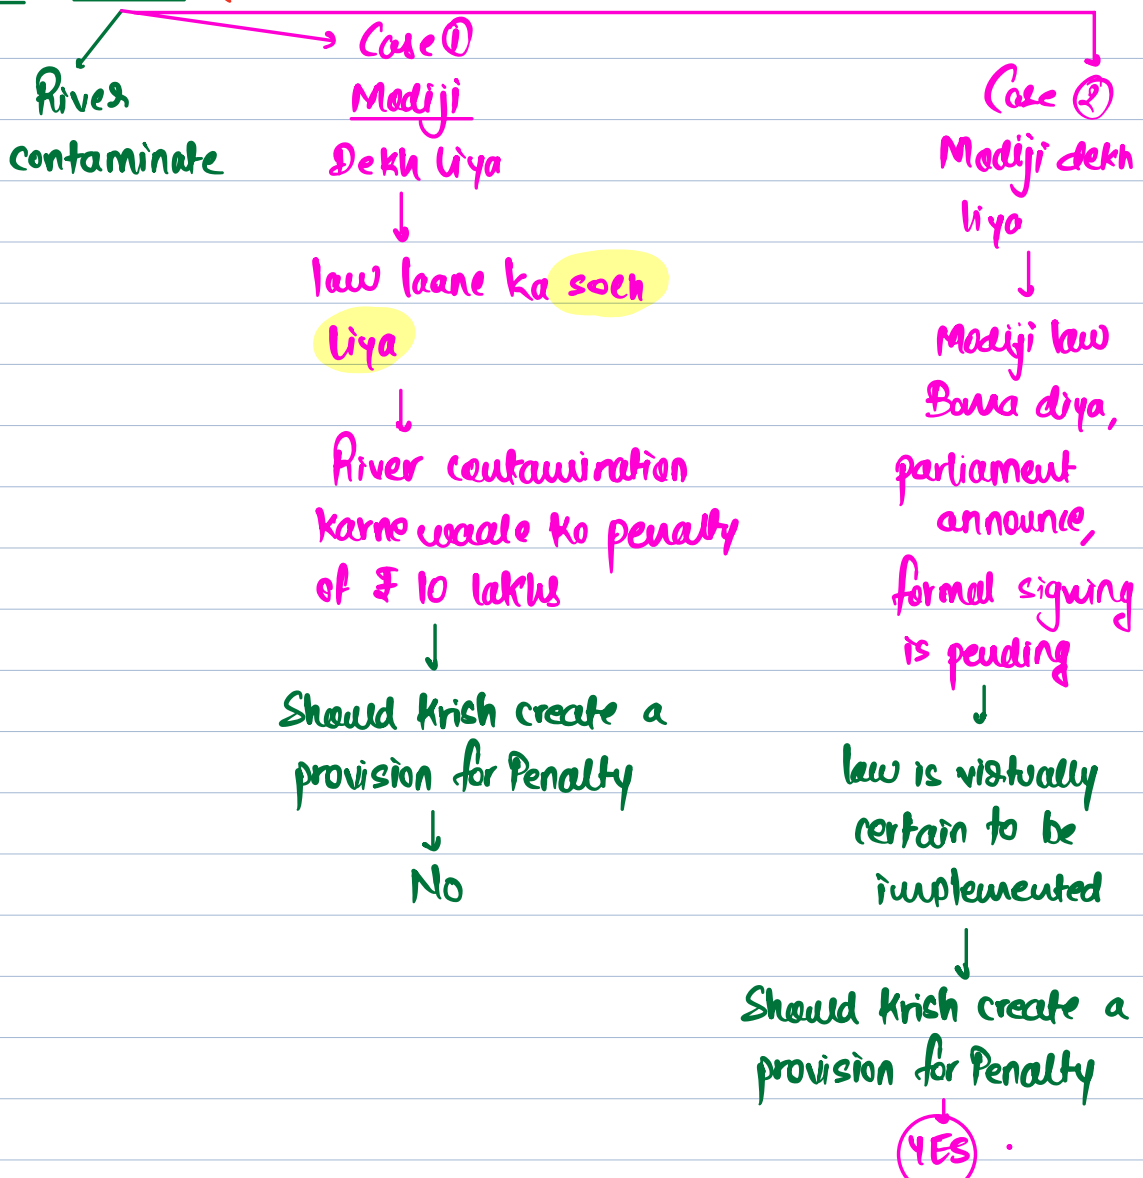 River
contaminate
Case ①
Modiji
Dekh liya
law laane ka soch
liya
River contamination
karne waale ko penalty
of ₹ 10 lakhs
Should Krish create a
provision for Penalty
No
Case ②
Modiji dekh
liya
Modiji law
Bana diya,
parliament
announce,
formal signing
is pending
law is virtually
certain to be
implemented
Should Krish create a
provision for Penalty
YES